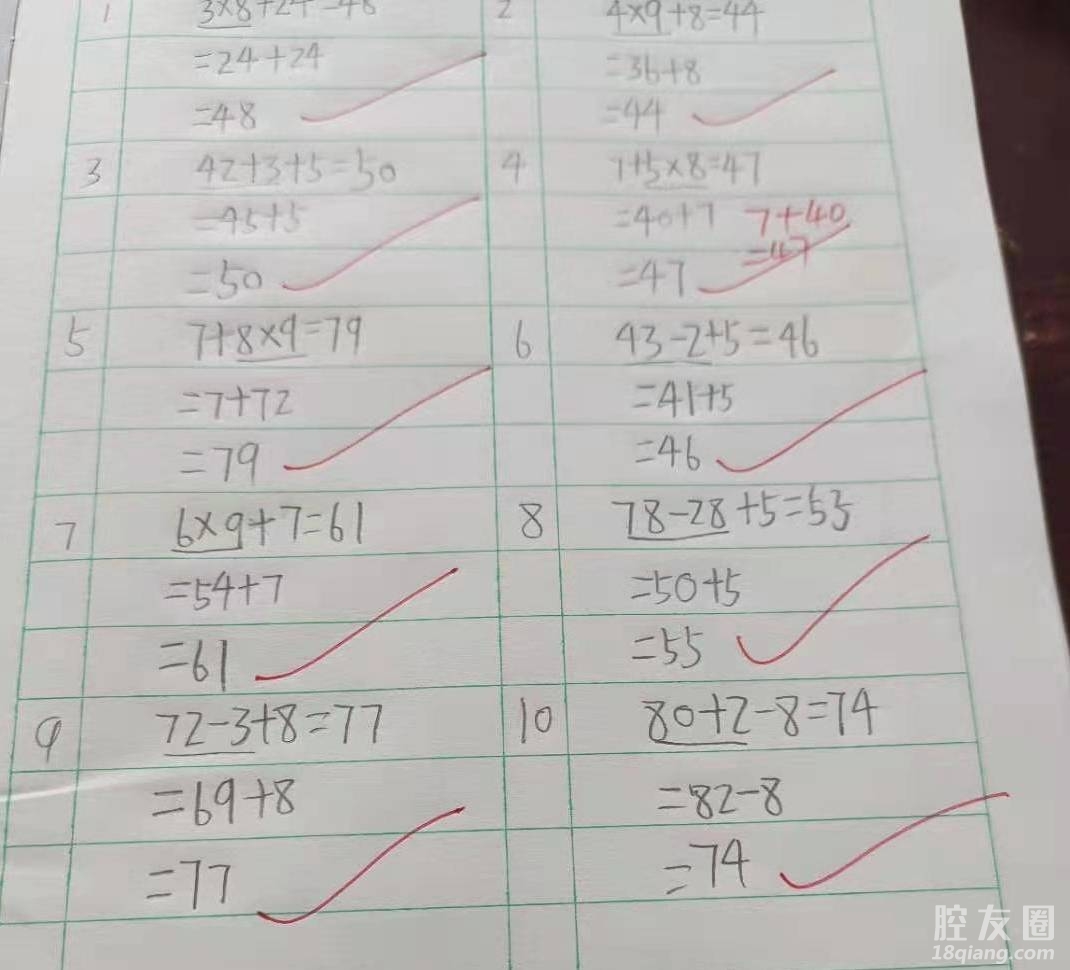 1 3×8+24=48
=24+24
=48
2 4×9+8=44
=36+8
=44
3 42+3+5=50
=45+5
=50
4 7+5×8=47
=40+7 7+40
=47 =47
5 7+8×9=79
=7+72
=79
6 43-2+5=46
=41+5
=46
7 6×9+7=61
=54+7
=61
8 78-28+5=55
=50+5
=55
9 72-3+8=77
=69+8
=77
10 80+2-8=74
=82-8
=74
腔友圈
18qiang.com